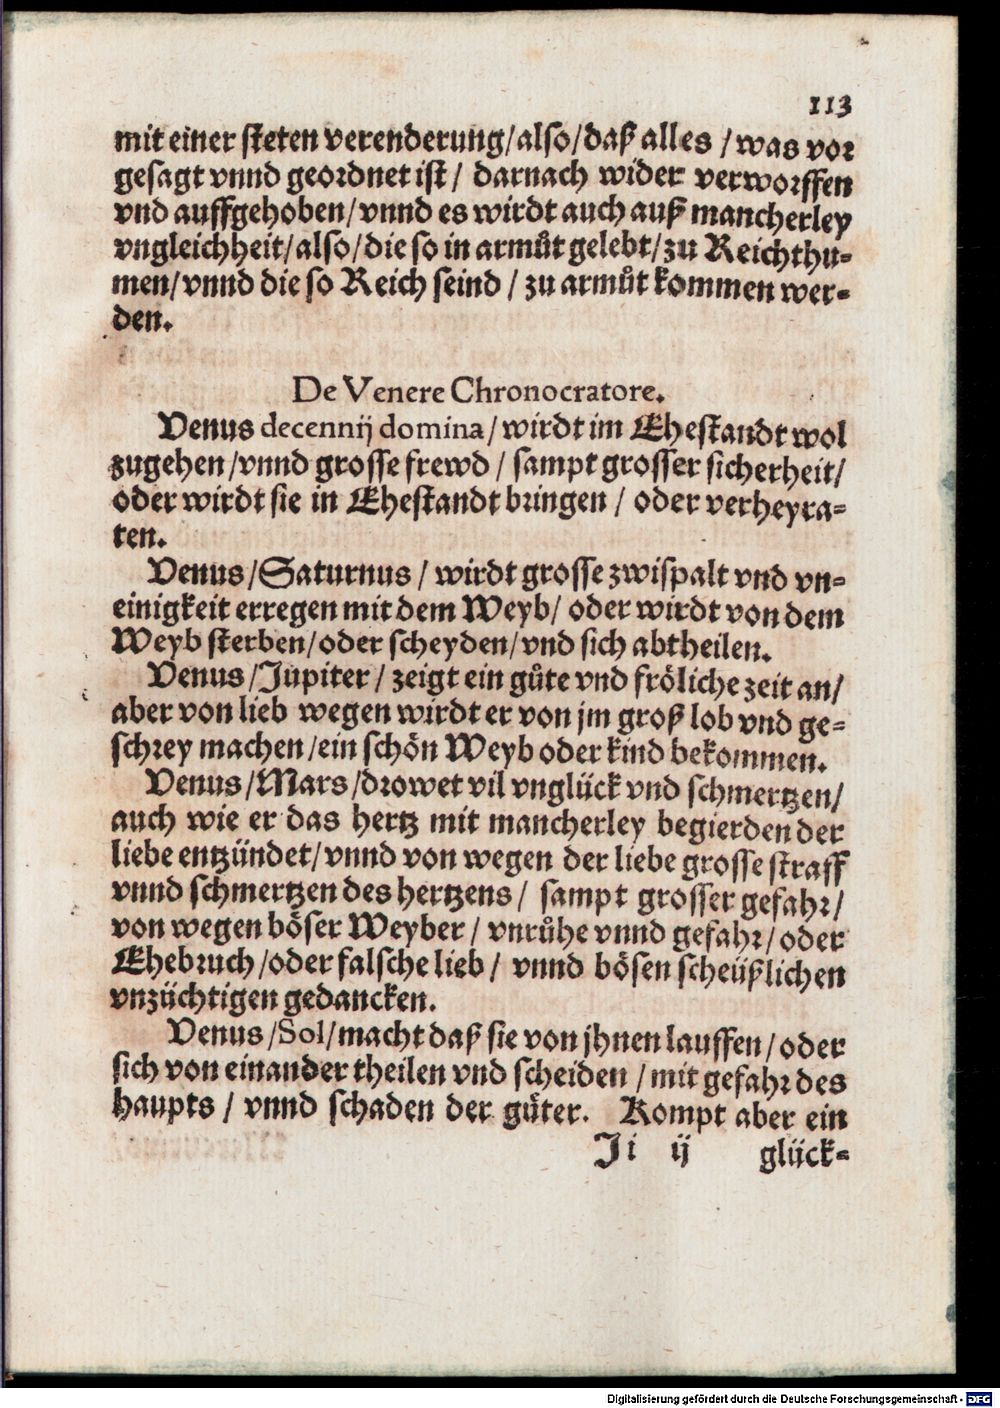 113
mit einer steten verenderung/also/daß alles/was vor
gesagt vnnd geordnet ist/ darnach wider verworffen
vnd auffgehoben/vnnd es wirdt auch auß mancherley
vngleichheit/also/die so in armůt gelebt/zu Reichthu-
men/vnnd die so Reich seind/zu armůt kommen wer-
den.
De Venere Chronocratore.
Venus decennij domina/wirdt im Ehestandt wol
zugehen/vnnd grosse frewd/sampt grosser sicherheit/
oder wirdt sie in Ehestandt bringen/oder verheyra-
ten.
Venus/Saturnus/wirdt grosse zwispalt vnd vn-
einigkeit erregen mit dem Weyb/ oder wirdt von dem
Weyb sterben/oder scheyden/vnd sich abtheilen.
Venus/Jupiter/zeigt ein gůte vnd fröliche zeit an/
aber von lieb wegen wirdt er von jm groß lob vnd ge-
schrey machen/ein schön Weyb oder kind bekommen.
Venus/Mars/drowet vil vnglück vnd schmertzen/
auch wie er das hertz mit mancherley begierden der
liebe entzündet/vnnd von wegen der liebe grosse straff
vnnd schmertzen des hertzens/ sampt grosser gefahr/
von wegen böser Weyber/ vnrůhe vnnd gefahr/oder
Ehebruch/oder falsche lieb/ vnnd bösen scheüßlichen
vnzüchtigen gedancken.
Venus/Sol/macht daß sie von jhnen lauffen/oder
sich von einander theilen vnd scheiden/mit gefahr des
haupts/ vnnd schaden der güter. Kompt aber ein
Ji ij glück-
Digitalisierung gefördert durch die Deutsche Forschungsgemeinschaft - DFG